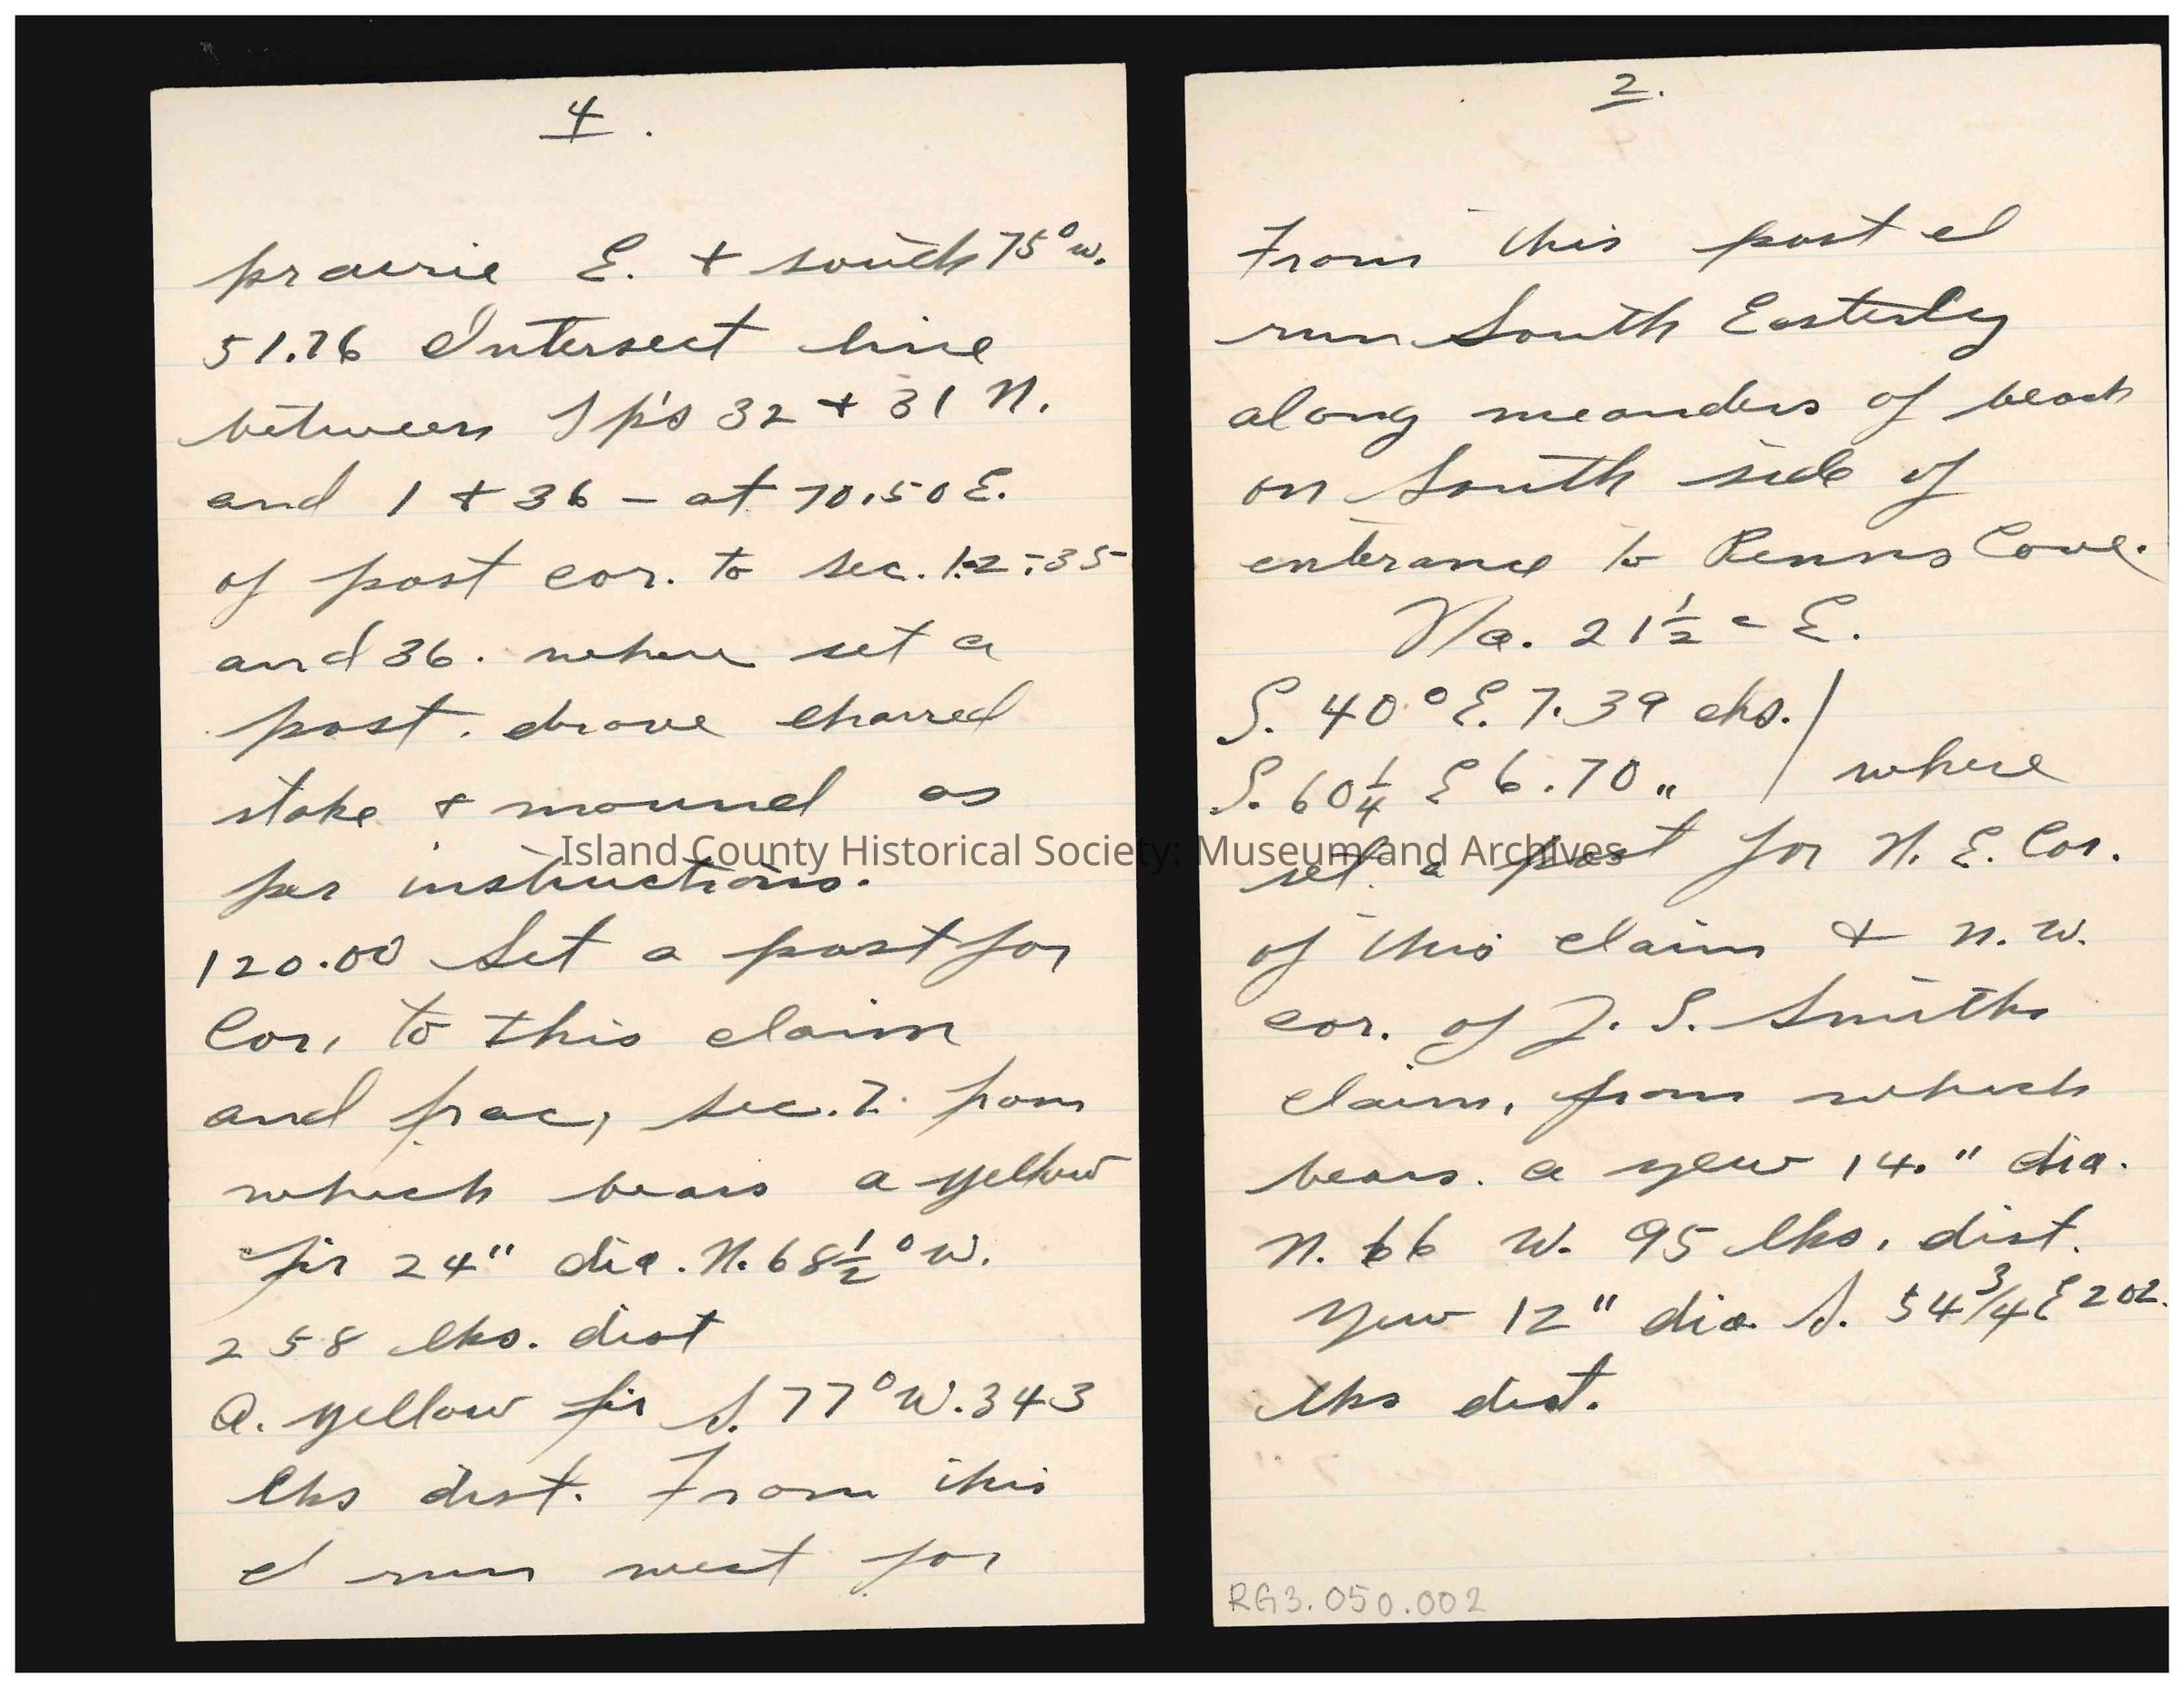 4.
prairie E. + south 75° W.
51.76 Intersect line
between Tp's 32 + 31 N.
and 1 + 36 - at 70.50 E.
of post cor. to sec. 1-2-35
and 36. where set a
post. drove charred
stake + mound as
per instructions.
120.00 Set a post for
Cor. to this claim
and frac, sec. 7. from
which bears a yellow
fir 24" dia. N. 68½° W.
258 lks. dist
A. yellow fir S. 77° W. 343
lks dist. From this
I run west for
2.
From this post I
run South Easterly
along meanders of beach
on South side of
entrance to Penns Cove.
Va. 21½ - E.
S. 40° E. 7.39 chs.
S. 60¼ E 6.70 " where
set a post for N. E. Cor.
of this claim + N. W.
cor. of J. S. Smiths
claim, from which
bears. a yew 14." dia.
N. 66 W. 95 lks. dist.
Yew 12" dia. S. 54 3/4 E 202.
lks dist.
RG3.050.002
Island County Historical Society: Museum and Archives